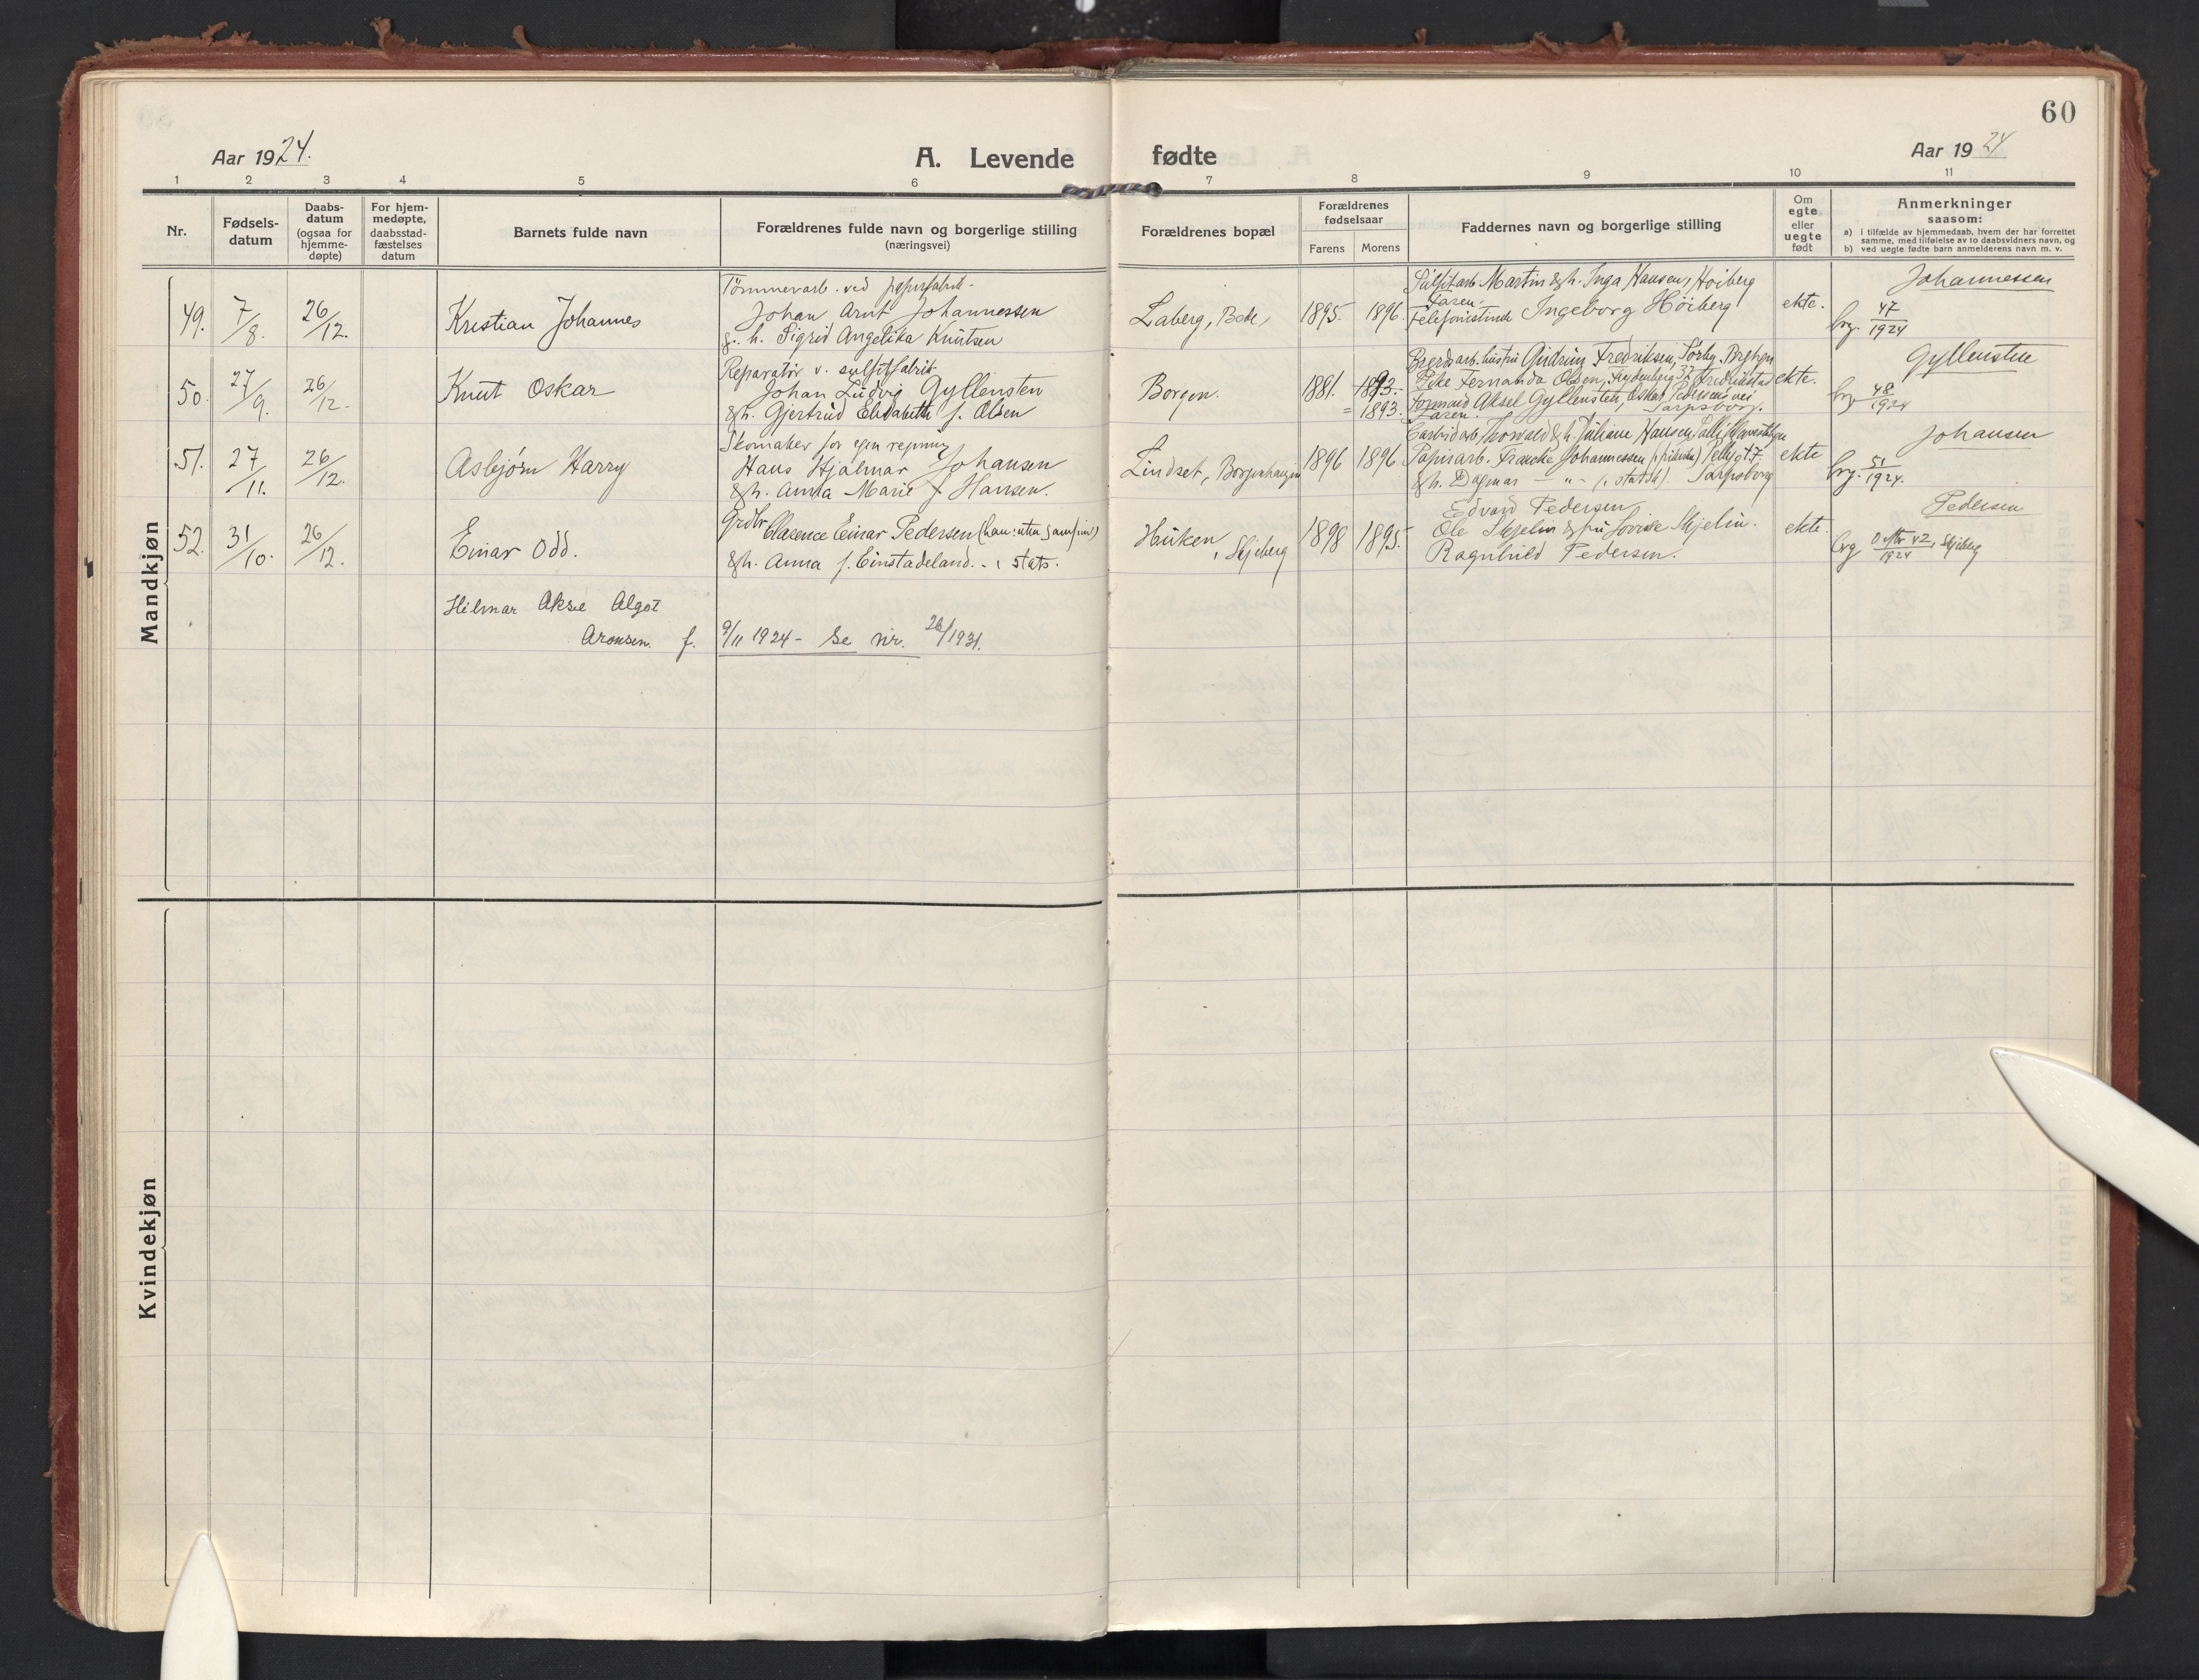 60
Aar 1924.
A. Levende fødte
Aar 1924
1 2 3 4 5 6 7 8 9 10 11
Nr.
Fødsels-
datum
Daabs-
datum
(ogsaa for
hjemme-
døpte)
For hjem-
medøpte,
daabsstad-
fæstelses
datum
Barnets fulde navn
Forældrenes fulde navn og borgerlige stilling
(næringsvei)
Forældrenes bopæl
Forældrenes
fødselsaar
Farens Morens
Faddernes navn og borgerlige stilling
Om
egte
eller
uegte
født
Anmerkninger
saasom:
a) i tilfælde av hjemmedaab, hvem der har forrettet
samme, med tilføielse av to daabsvidners navn, og
b) ved uegte fødte barn anmelderens navn m. v.
Mandkjøn
49. 7/8. 26/12. Kristian Johannes
Tömmerarb. ved papirfabrik-
Johan Arnt Johannessen
g. h. Sigrid Angelika Knutsen
Laberg, 1895. 1896.
Sulfitarb. Martin & h. Inga Hansen, Hoiberg
Faren.
Telefonistinde Ingeborg Höiberg
ekte.
Johannessen
brg. 47/1924
50. 27/9. 26/12. Knut Oskar
Reparatör v. sulfitfabrik
Johan Ludvig Gyllensten
& h. Gjertrud Elisabeth f. Olsen
Borgen. 1881. 1893.
= 1893.
hustru Gudrun Fredriksen, Sørby,
Pike Fernanda Olsen, Frydenberg 32 Fredrikstad
Formand Aksel Gyllensten, Oskar Pedersens vei
Faren. Sarpsborg.
ekte.
Gyllensten
brg. 48/1924
51. 27/11. 26/12. Asbjørn Harry
Skomaker for egen regning
Hans Hjalmar Johansen
& h. Anna Marie f. Hansen.
Lindset, Borgenhaugen 1896 1896.
Carbidarb. Thorvald & h. Juliane Hansen,
Papirarb. Johannessen
& h. Dagmar — " — (i statsk). Sarpsborg
ekte
Johansen
brg. 51/1924.
52. 31/10. 26/12. Einar Odd.
Grdbr Clarence Einar Pedersen
& h. Anna f. Einstadeland. - i stats.
Huken
, Skjeberg
1898 1895.
Edvard Pedersen,
Ole Skjelin & fru Lovise Skjelin.
Ragnhild Pedersen.
ekte.
Pedersen
brg 42, Skjeberg
1924
Hilmar Aksel Algot
Aronsen. f. 9/11 1924 - Se nr. 26/1931.
Kvindekjøn